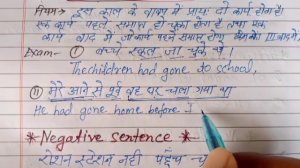 नियम:- इस काल के वाक्य में प्रायः दो कार्य होता है।
एक कार्य पहले समाप्त हो चुका होता है तथा एक
कार्य बाद में
Exam- ① बच्चे स्कूल जा चुके थे।
The children had gone to school,
② मेरे आने से पूर्व वह घर चला गया था
He had gone home before I
* Negative sentence -*
स्टेशन नहीं पहुँच